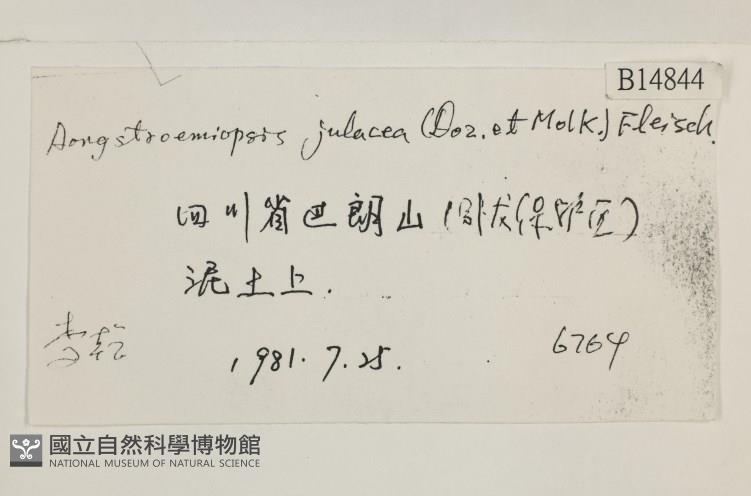 B14844
Aongstroemiopsis julacea (Doz. et Molk.) Fleisch.
四川省巴朗山(卧龙保护区)
泥土上.
李乾
1981.7.25.
6764
國立自然科學博物館
NATIONAL MUSEUM OF NATURAL SCIENCE